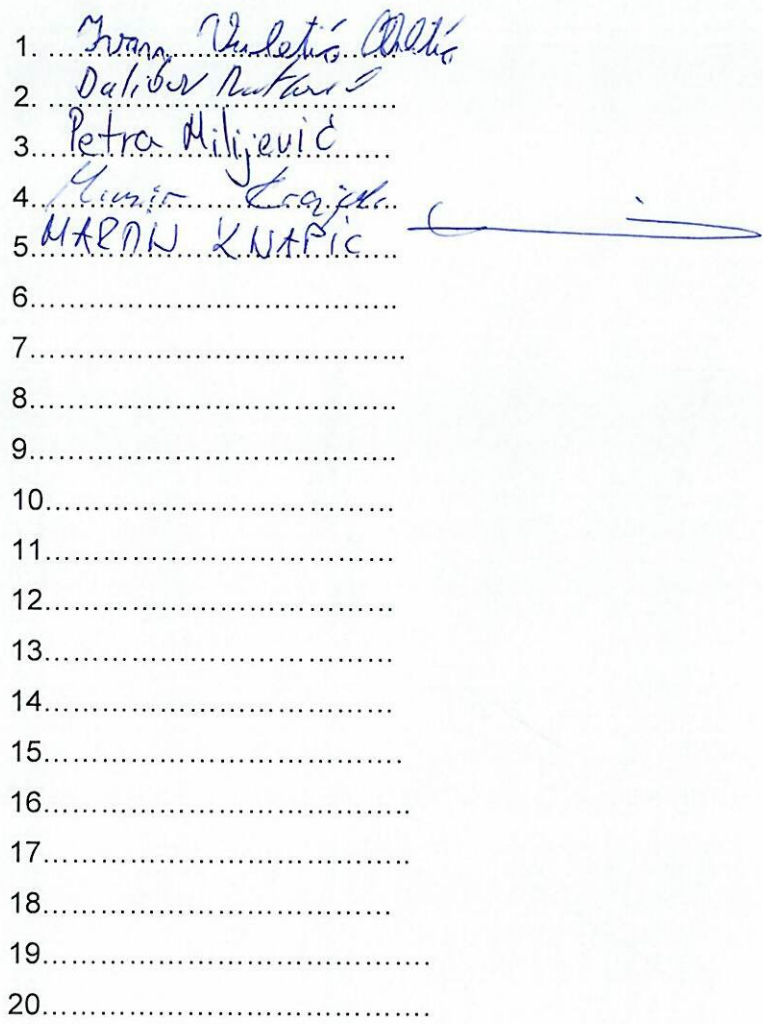 1. Ivan Vuletić
2. Dalibor
3. Petra Milijević
4.
5. MARTIN KNAPIC
6.
7.
8.
9.
10.
11.
12.
13.
14.
15.
16.
17.
18.
19.
20.